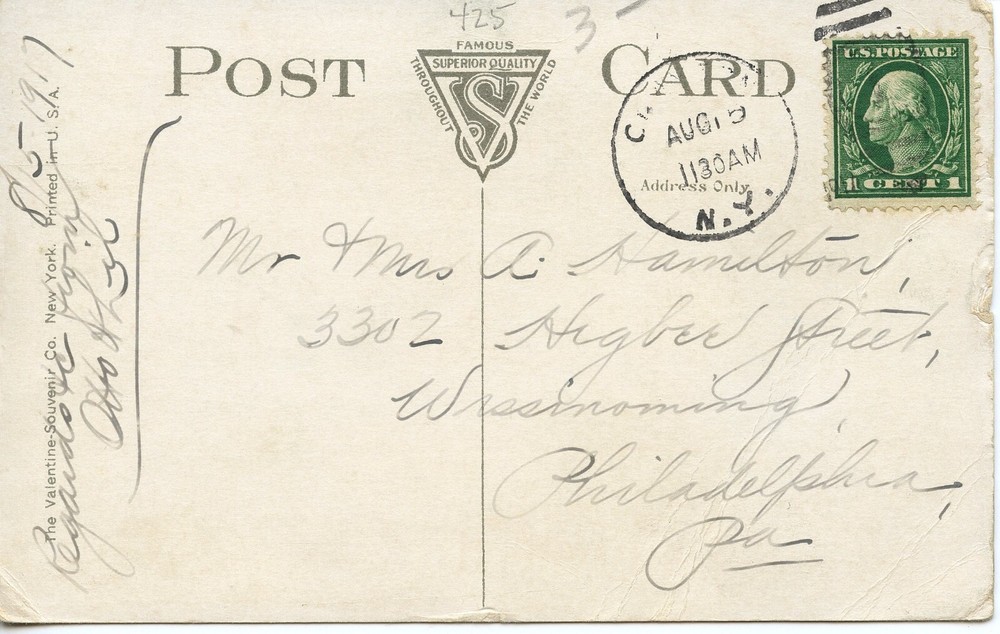 425
3
POST CARD
FAMOUS
SUPERIOR QUALITY
THROUGHOUT
THE WORLD
VS
AUG 5
1130AM
N.Y.
U.S. POSTAGE
1 CENT 1
Address Only.
Mr & Mrs A. Hamilton,
3302 Higbee Street,
Wissinoming
Philadelphia,
Pa
The Valentine-Souvenir Co. New York. Printed in U. S. A.
8/5-1917
Regards to
Otto &